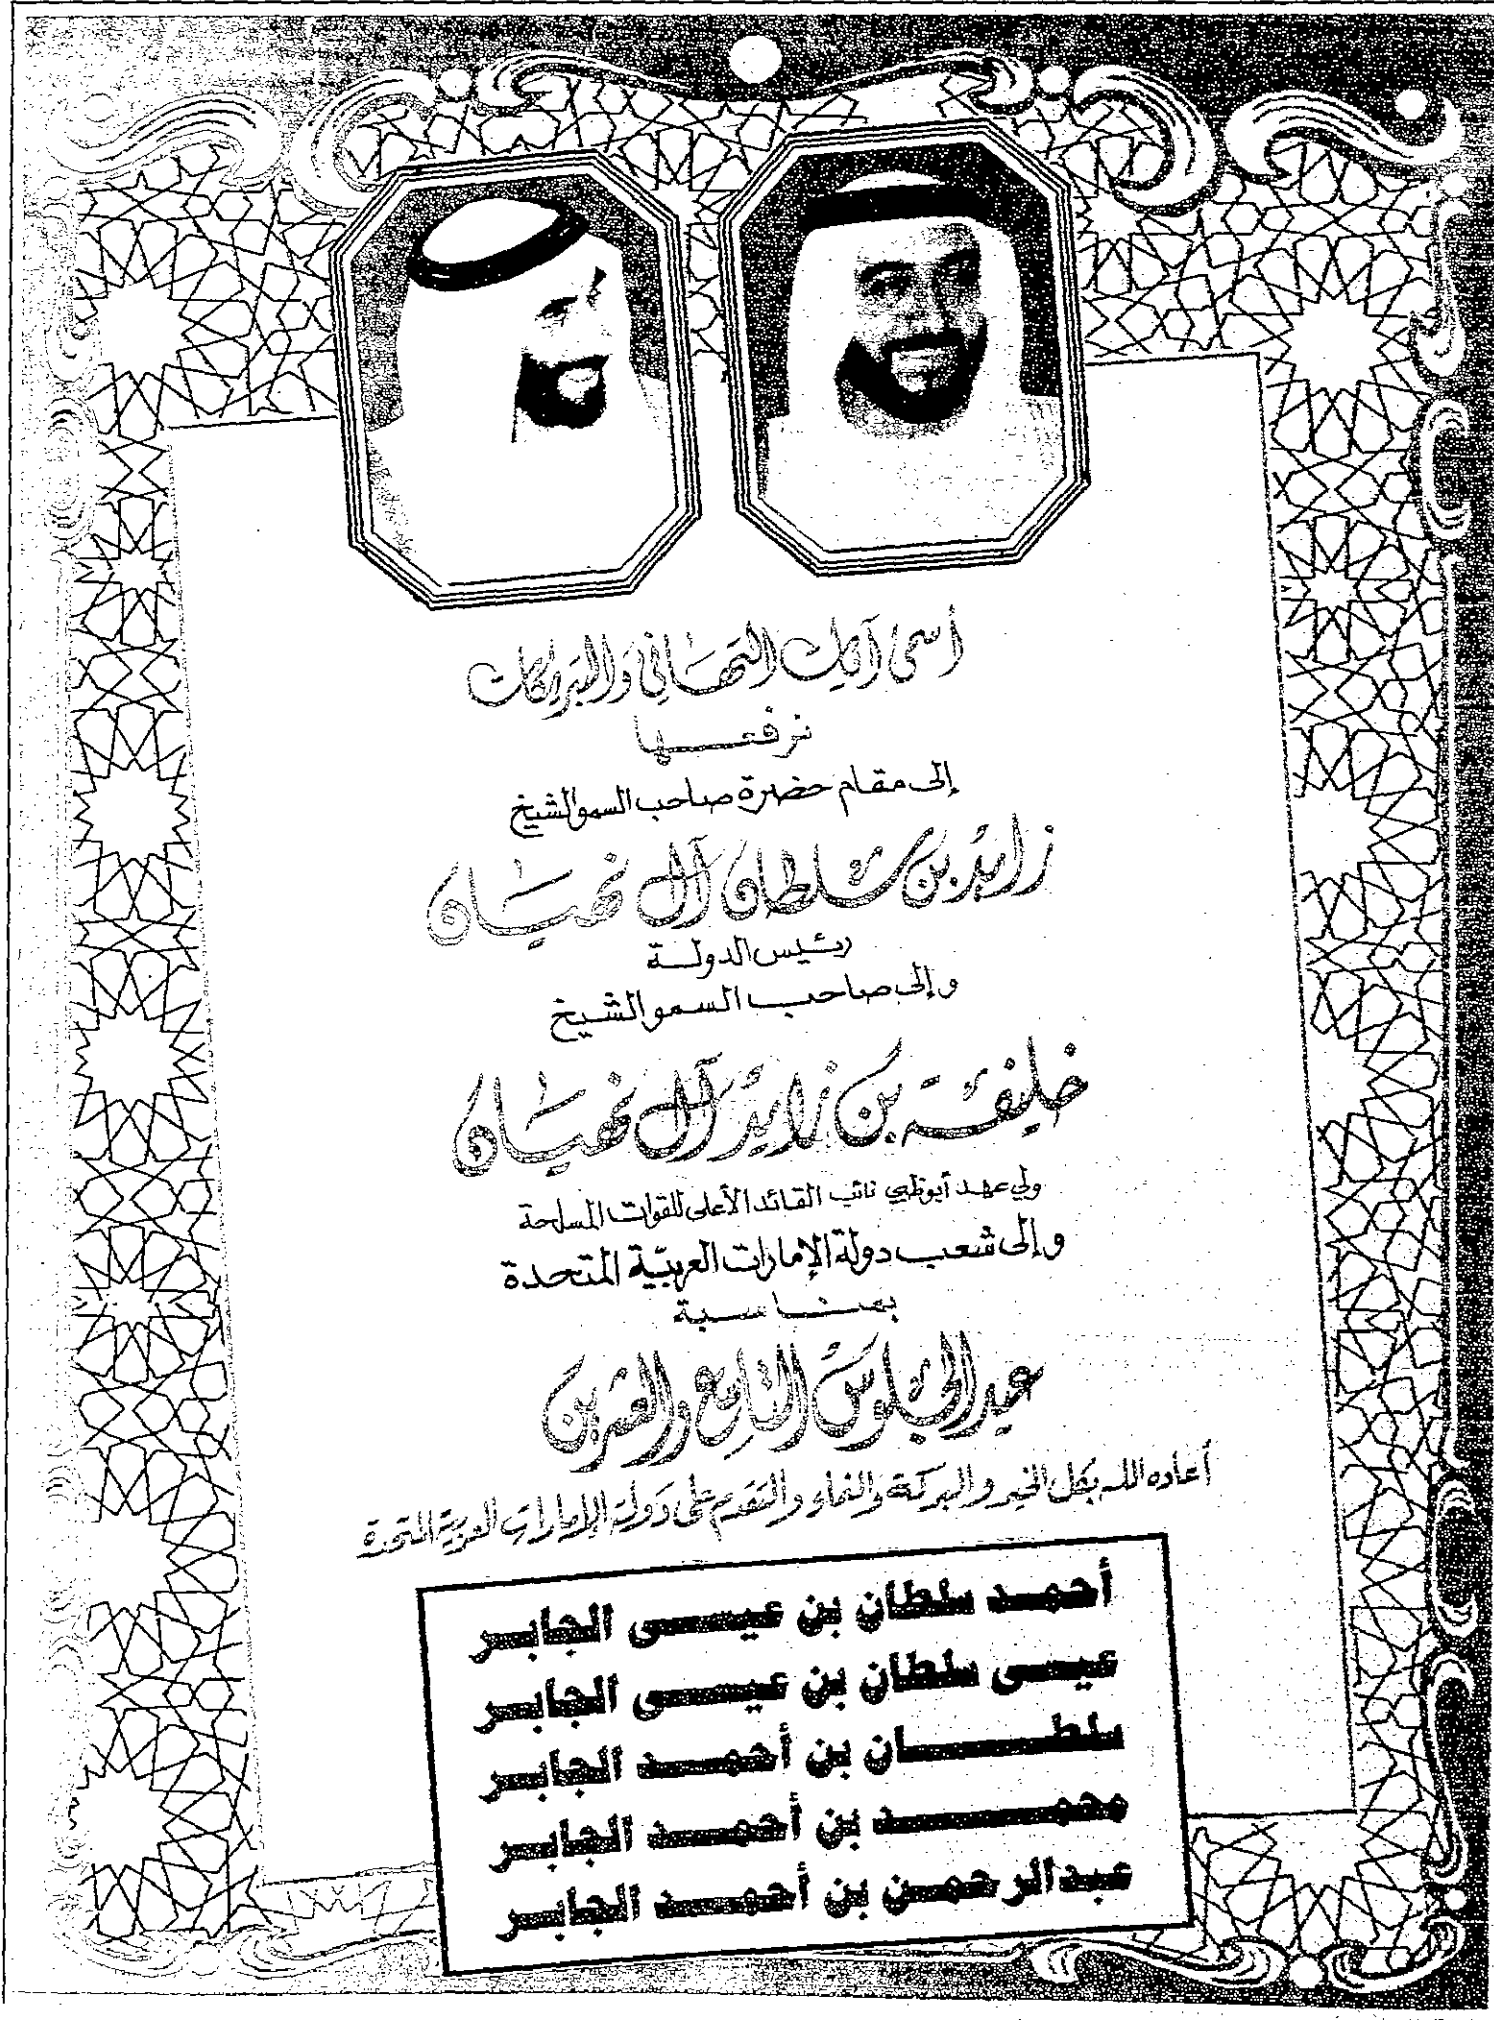 أسمى آيات التهاني والتبريكات
نرفعها
إلى مقام حضرة صاحب السمو الشيخ
زايد بن سلطان آل نهيان
رئيس الدولة
وإلى صاحب السمو الشيخ
خليفة بن زايد آل نهيان
ولي عهد أبوظبي نائب القائد الأعلى للقوات المسلحة
وإلى شعب دولة الإمارات العربية المتحدة
بمناسبة
عيد الجلوس التاسع والعشرين
أعاده الله بكل الخير والبركة والنماء والتقدم على دولة الإمارات العربية المتحدة
أحمد سلطان بن عيسى الجابر
عيسى سلطان بن عيسى الجابر
سلطان بن أحمد الجابر
محمد بن أحمد الجابر
عبدالرحمن بن أحمد الجابر